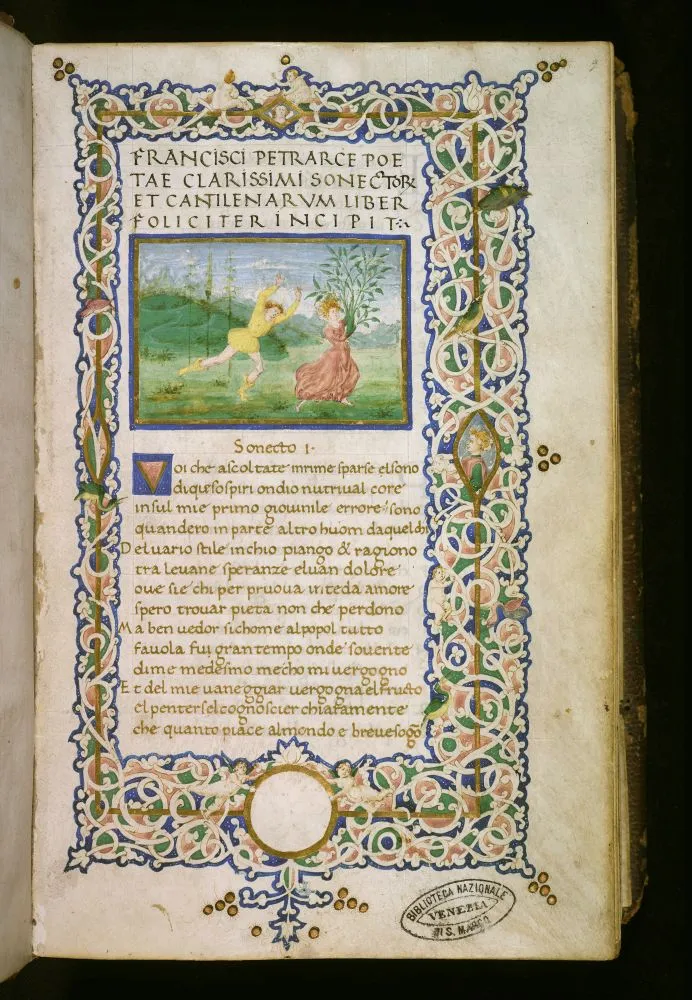 FRANCISCI PETRARCE POE
TAE CLARISSIMI SONECTOR
ET CANTILENARVM LIBER
FOLICITER INCIPIT
Sonecto 1.
Voi che ascoltate inrime sparse elsono
diquesospiri ondio nutrival core
insul mie primo giovinile errore sono
quandero inparte altro huom daquel chi
Deluario stile inchio piango & ragiono
tra levane speranze eluan dolore
ove sie chi per pruova inteda amore
spero trovar pieta non che perdono
Ma ben vedor sichome alpopol tutto
favola fui gran tempo onde sovente
dime medesmo mecho mi vergogno
Et del mie vaneggiar vergogna elfructo
el pentersel cognoscier chiaramente
che quanto piace almondo e breve sogo
BIBLIOTECA NAZIONALE
VENEZIA
DI S. MARCO